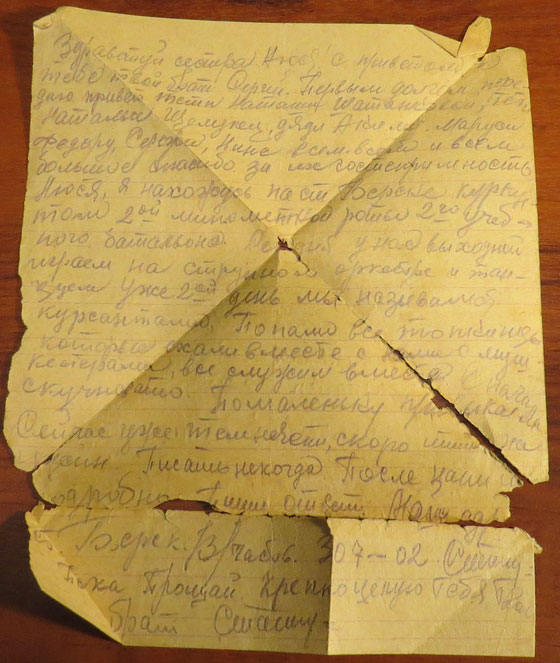 Здравствуй сестра Нюся! с приветом к
тебе твой брат Сергей. Первым долгом пере-
даю привет тети Наталии
Наталье дяди Акиму. Маруси
Федору, Сергею, Нине всем всем и всем
большое спасибо за их гостеприимность
Нюся, я нахожусь на ст Бердске курсан-
том 2ой минометной роты 2го учеб-
ного батальона. Сегодня у нас выходной
играем на струнном оркестре и тан-
цуем Уже 2ой день мы называемся
курсантами. Попали все
которые ехали вместе с нами с
все служим вместе Снача
скучновато Помаленьку
Сейчас уже темнеет, скоро
Писать некогда После напишу
подробно Пиши ответ Мой адр
Бердск. п/я 307—02.
Пока Прощай Крепко целую тебя Твой
брат